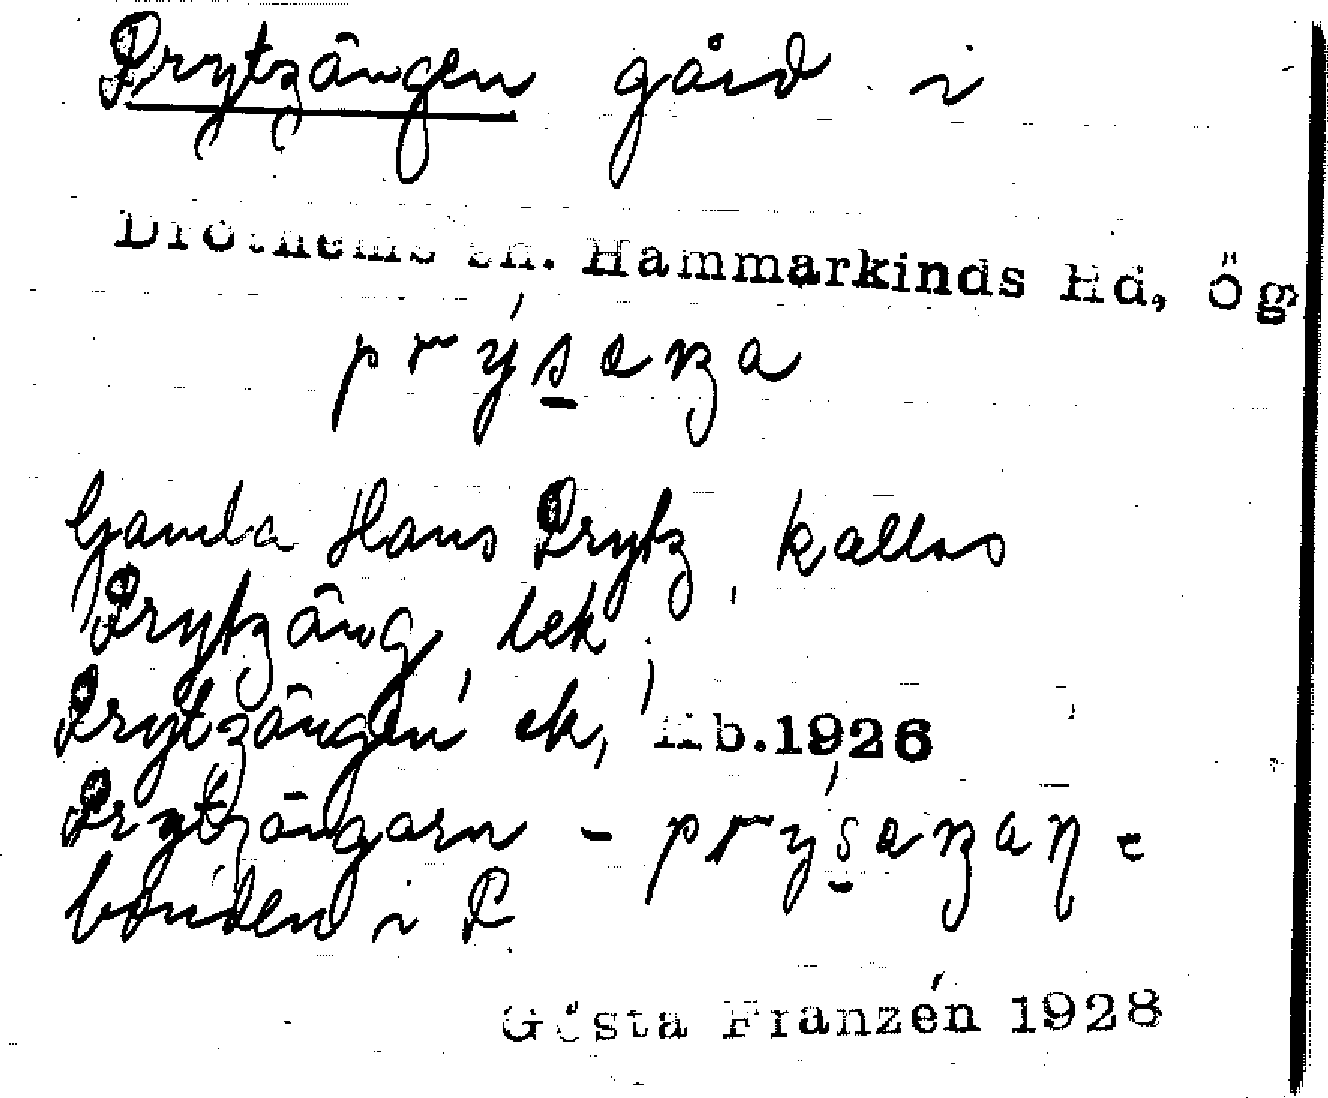 Prytzängen gård i
Drothems sn. Hammarkinds Hd, Ög
prýsaŋa
Gamla Hans Prytz kallas
Prytzäng, bek,
Prytzängen ek, Kb. 1926
Prytzängarn - prýsaŋaɳ =
bonden i P
Gösta Franzén 1928